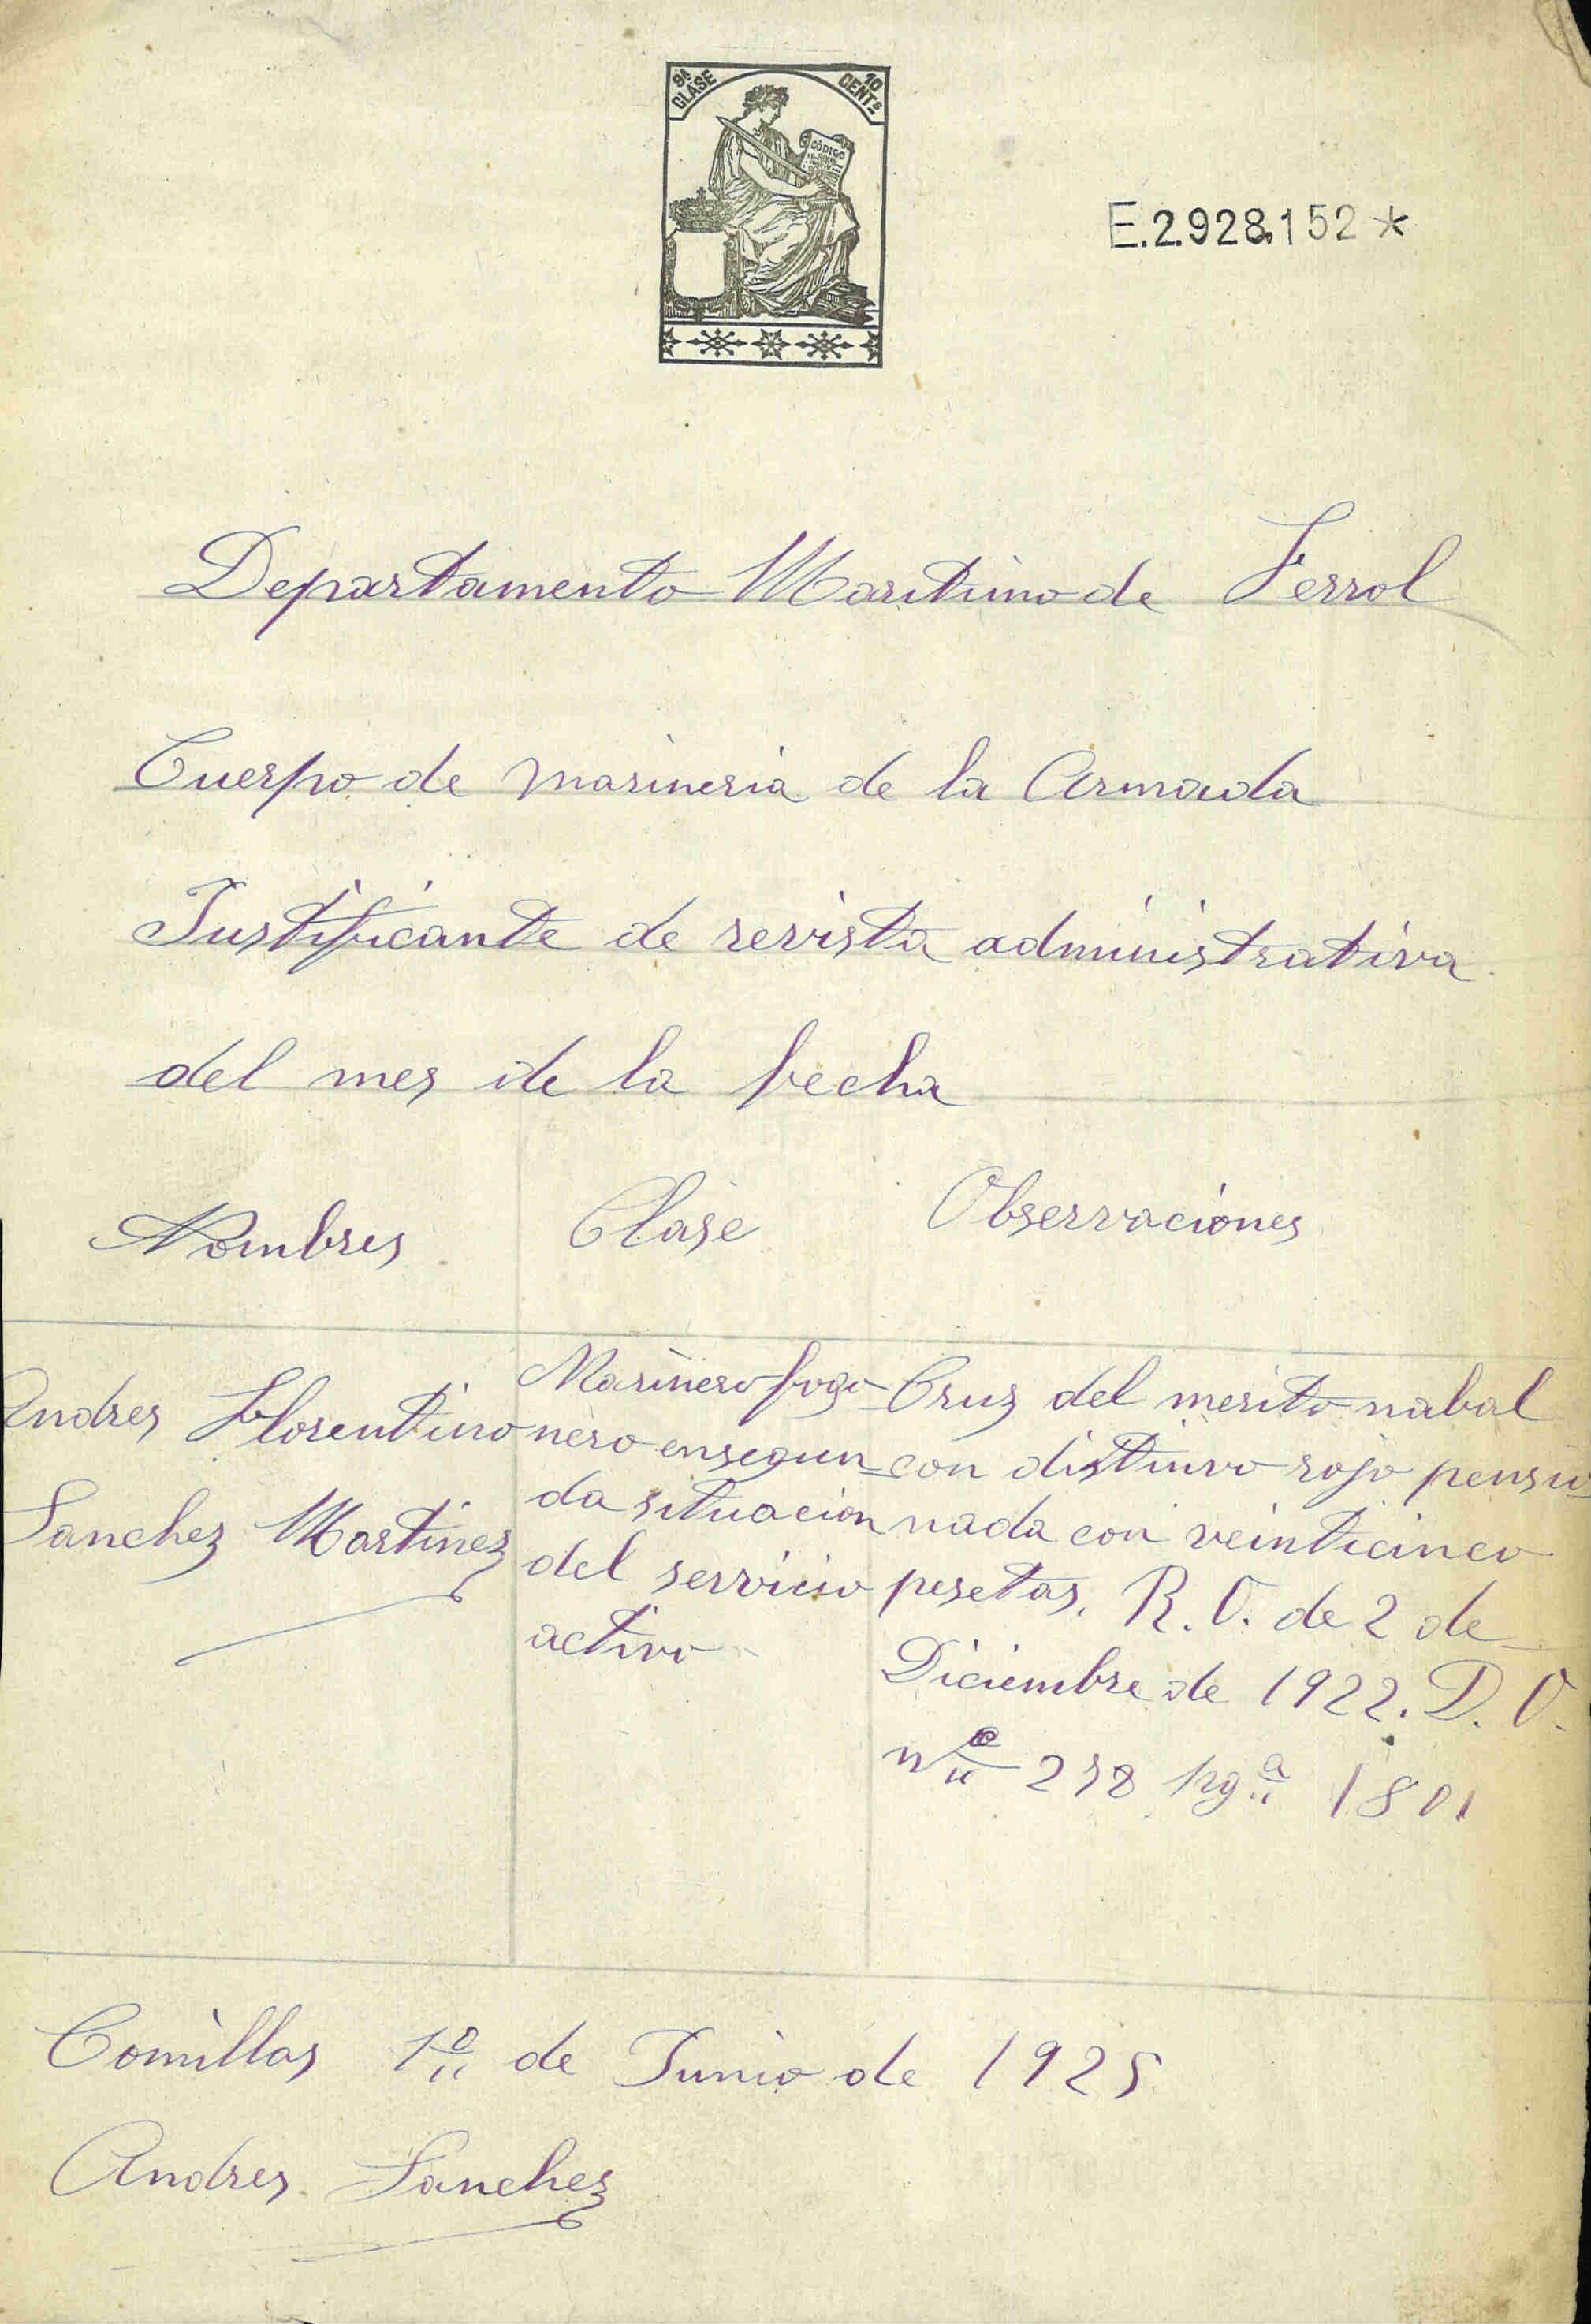 9ª CLASE
10 CENTs
CÓDIGO
E.2.928.152 *
Departamento Maritimo de Ferrol
Cuerpo de marineria de la Armada
Justificante de revista administrativa
del mes de la fecha
Nombres
Clase
Observaciones
Andres Florentino
Sanchez Martinez
Marinero fogo
nero en segun
da situacion
del servicio
activo
Cruz del merito nabal
con distinvo rojo pensio
nada con veinticinco
pesetas. R. O. de 2 de
Diciembre de 1922. D. O.
nº 278 pgª 1801
Comillas 1º de Junio de 1925
Andres Sanchez